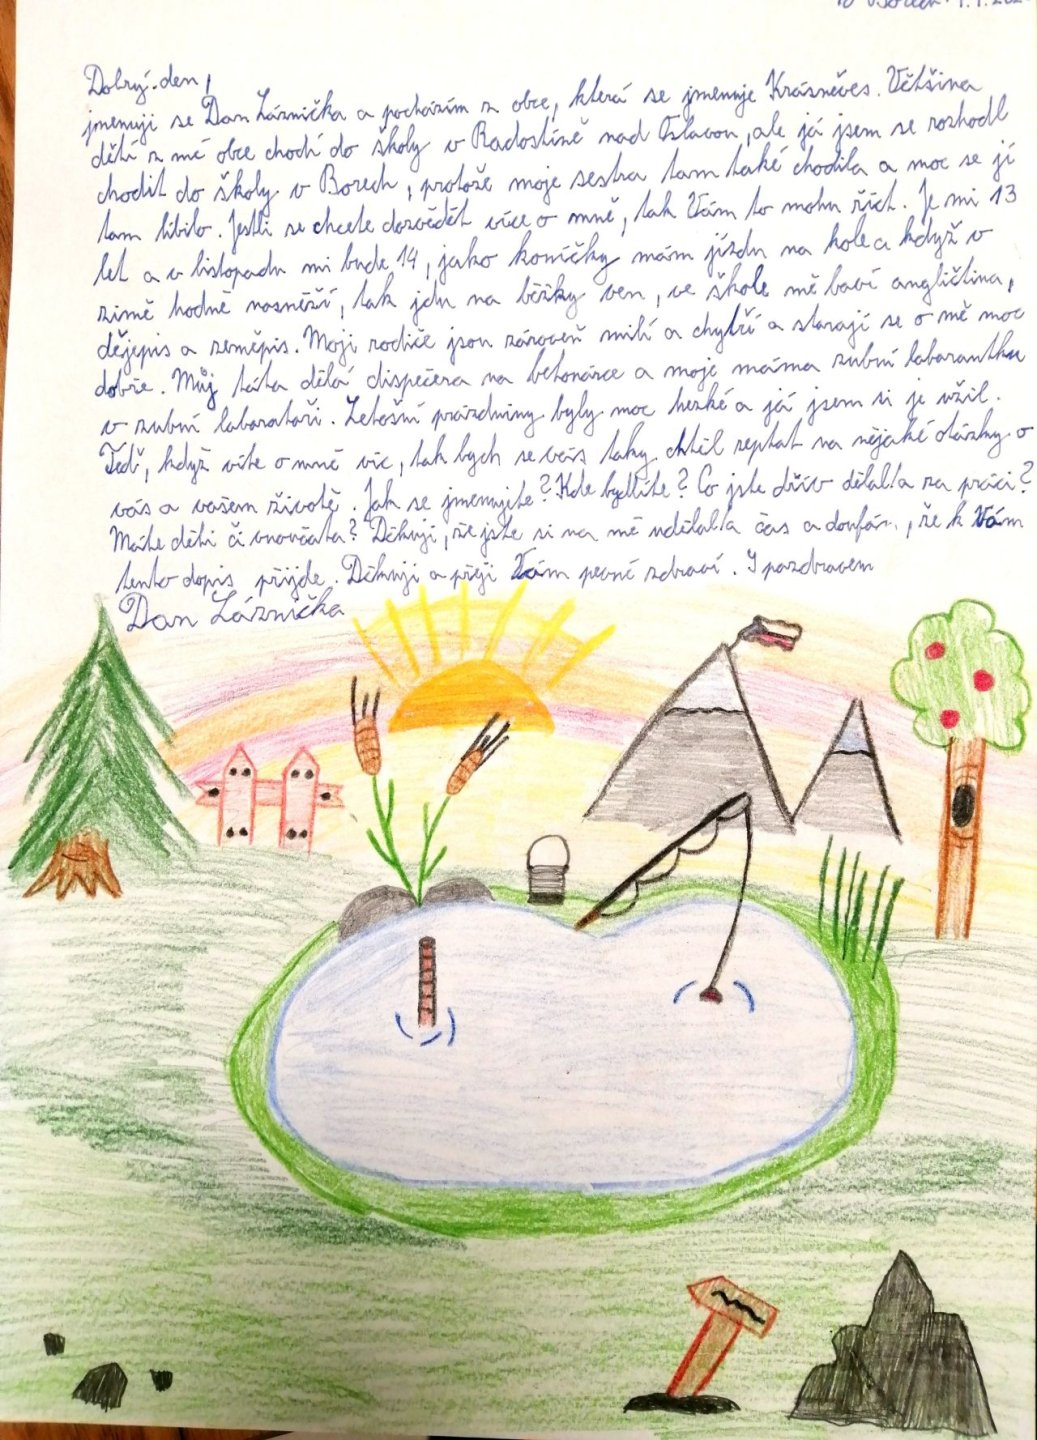 V Borech
Dobrý den,
jmenuji se Dan Láznička a pocházím z obce, která se jmenuje Krásněves. Většina
dětí z mé obce chodí do školy v Radostíně nad Oslavou, ale já jsem se rozhodl
chodit do školy v Borech, protože moje sestra tam také chodila a moc se jí
tam líbilo. Jestli se chcete dozvědět více o mně, tak Vám to mohu říct. Je mi 13
let a v listopadu mi bude 14, jako koníčky mám jízdu na kole a když v
zimě hodně nasněží, tak jdu na běžky ven, ve škole mě baví angličtina,
dějepis a zeměpis. Moji rodiče jsou zároveň milí a chytří a starají se o mě moc
dobře. Můj táta dělá dispečera na betonárce a moje máma zubní labarantku
v zubní labaratoři. Letošní prázdniny byly moc hezké a já jsem si je užil.
Teď, když víte o mně víc, tak bych se vás taky chtěl zeptat na nějaké otázky o
vás a vašem životě. Jak se jmenujete? Kde bydlíte? Co jste dřív dělal/a za práci?
Máte děti či vnoučata? Děkuji, že jste si na mě udělal/a čas a doufám, že k Vám
tento dopis přijde. Děkuji a přeji Vám pevné zdraví. S pozdravem
Dan Láznička